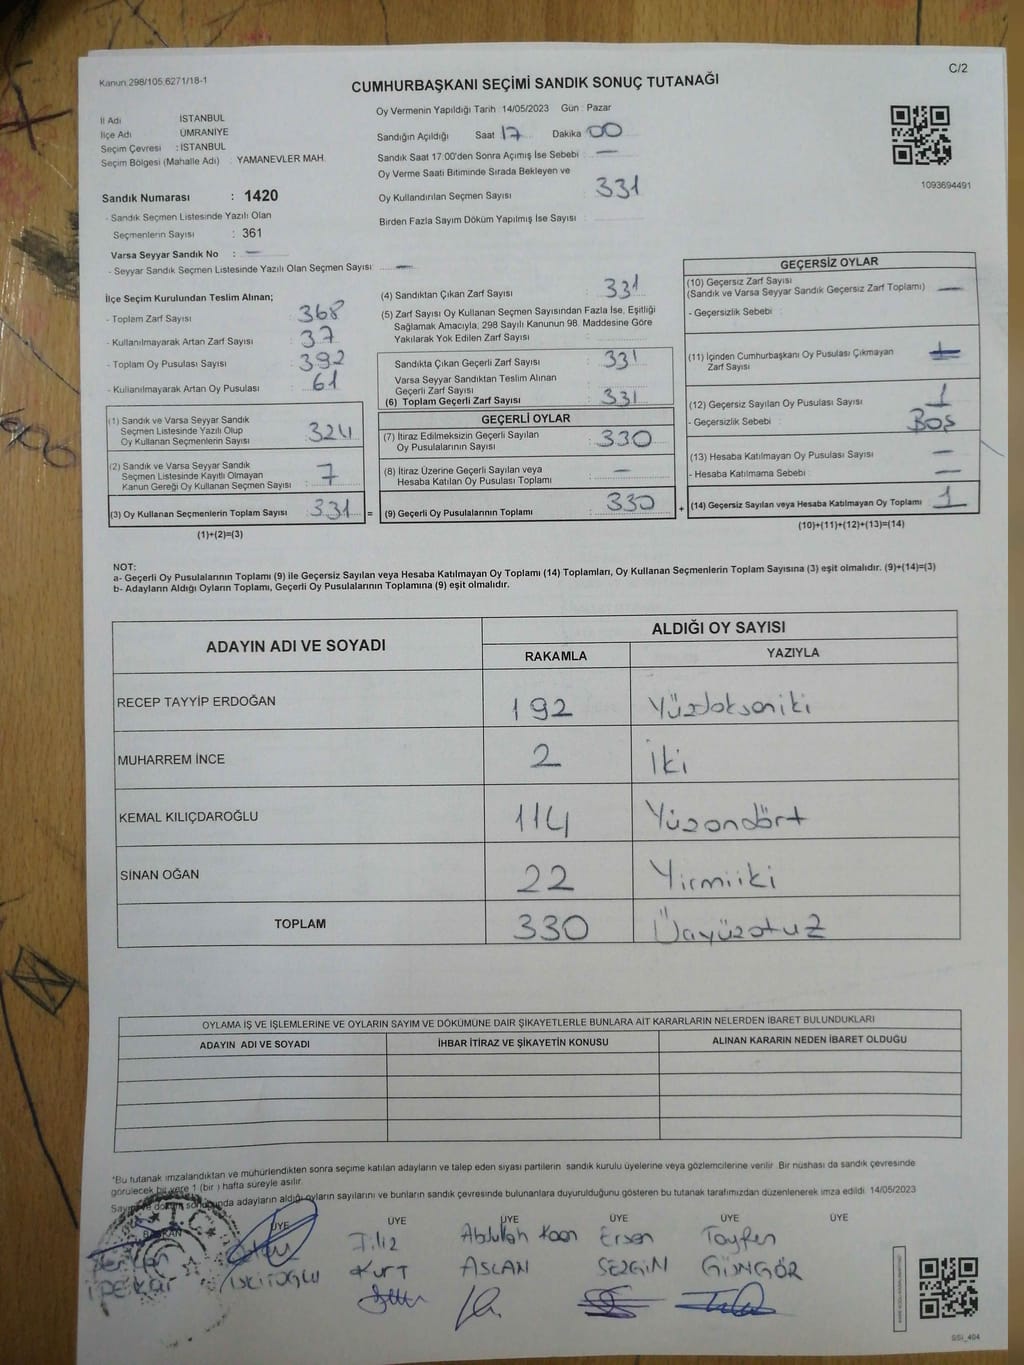 Kanun 298/105 6271/18-1
C/2
CUMHURBAŞKANI SEÇİMİ SANDIK SONUÇ TUTANAĞI
İl Adı İSTANBUL
İlçe Adı ÜMRANİYE
Seçim Çevresi : İSTANBUL
Seçim Bölgesi (Mahalle Adı) : YAMANEVLER MAH.
Sandık Numarası : 1420
- Sandık Seçmen Listesinde Yazılı Olan
Seçmenlerin Sayısı : 361
Varsa Seyyar Sandık No : —
- Seyyar Sandık Seçmen Listesinde Yazılı Olan Seçmen Sayısı: —
Oy Vermenin Yapıldığı Tarih : 14/05/2023 Gün : Pazar
Sandığın Açıldığı Saat 17 Dakika 00
Sandık Saat 17:00'den Sonra Açımış İse Sebebi : —
Oy Verme Saati Bitiminde Sırada Bekleyen ve
Oy Kullandırılan Seçmen Sayısı : 331
Birden Fazla Sayım Döküm Yapılmış İse Sayısı :
1093694491
İlçe Seçim Kurulundan Teslim Alınan;
- Toplam Zarf Sayısı : 368
- Kullanılmayarak Artan Zarf Sayısı : 37
- Toplam Oy Pusulası Sayısı : 392
- Kullanılmayarak Artan Oy Pusulası : 61
(1) Sandık ve Varsa Seyyar Sandık
Seçmen Listesinde Yazılı Olup
Oy Kullanan Seçmenlerin Sayısı : 324
(2) Sandık ve Varsa Seyyar Sandık
Seçmen Listesinde Kayıtlı Olmayan
Kanun Gereği Oy Kullanan Seçmen Sayısı : 7
(3) Oy Kullanan Seçmenlerin Toplam Sayısı : 331 =
(1)+(2)=(3)
(4) Sandıktan Çıkan Zarf Sayısı : 331
(5) Zarf Sayısı Oy Kullanan Seçmen Sayısından Fazla İse, Eşitliği
Sağlamak Amacıyla, 298 Sayılı Kanunun 98. Maddesine Göre
Yakılarak Yok Edilen Zarf Sayısı :
Sandıkta Çıkan Geçerli Zarf Sayısı : 331
Varsa Seyyar Sandıktan Teslim Alınan
Geçerli Zarf Sayısı :
(6) Toplam Geçerli Zarf Sayısı : 331
GEÇERLİ OYLAR
(7) İtiraz Edilmeksizin Geçerli Sayılan
Oy Pusulalarının Sayısı : 330
(8) İtiraz Üzerine Geçerli Sayılan veya
Hesaba Katılan Oy Pusulası Toplamı : —
(9) Geçerli Oy Pusulalarının Toplamı : 330 +
GEÇERSİZ OYLAR
(10) Geçersiz Zarf Sayısı
(Sandık ve Varsa Seyyar Sandık Geçersiz Zarf Toplamı) : —
- Geçersizlik Sebebi :
(11) İçinden Cumhurbaşkanı Oy Pusulası Çıkmayan
Zarf Sayısı :
(12) Geçersiz Sayılan Oy Pusulası Sayısı : 1
- Geçersizlik Sebebi : BOŞ
(13) Hesaba Katılmayan Oy Pusulası Sayısı : —
- Hesaba Katılmama Sebebi : —
(14) Geçersiz Sayılan veya Hesaba Katılmayan Oy Toplamı : 1
(10)+(11)+(12)+(13)=(14)
NOT:
a- Geçerli Oy Pusulalarının Toplamı (9) ile Geçersiz Sayılan veya Hesaba Katılmayan Oy Toplamı (14) Toplamları, Oy Kullanan Seçmenlerin Toplam Sayısına (3) eşit olmalıdır. (9)+(14)=(3)
b- Adayların Aldığı Oyların Toplamı, Geçerli Oy Pusulalarının Toplamına (9) eşit olmalıdır.
ADAYIN ADI VE SOYADI ALDIĞI OY SAYISI
RAKAMLA YAZIYLA
RECEP TAYYİP ERDOĞAN 192 Yüzdoksaniki
MUHARREM İNCE 2 İki
KEMAL KILIÇDAROĞLU 114 Yüzondört
SİNAN OĞAN 22 Yirmiiki
TOPLAM 330 Üçyüzotuz
OYLAMA İŞ VE İŞLEMLERİNE VE OYLARIN SAYIM VE DÖKÜMÜNE DAİR ŞİKAYETLERLE BUNLARA AİT KARARLARIN NELERDEN İBARET BULUNDUKLARI
ADAYIN ADI VE SOYADI İHBAR İTİRAZ VE ŞİKAYETİN KONUSU ALINAN KARARIN NEDEN İBARET OLDUĞU
*Bu tutanak imzalandıktan ve mühürlendikten sonra seçime katılan adayların ve talep eden siyasi partilerin sandık kurulu üyelerine veya gözlemcilerine verilir. Bir nüshası da sandık çevresinde
görülecek bir yere 1 (bir) hafta süreyle asılır.
Sayım ve döküm sonucunda adayların aldığı oyların sayılarını ve bunların sandık çevresinde bulunanlara duyurulduğunu gösteren bu tutanak tarafımızdan düzenlenerek imza edildi. 14/05/2023
BAŞKAN ÜYE ÜYE ÜYE ÜYE ÜYE ÜYE
Filiz Abdullah Kaan Ersen Tayfun
KURT ASLAN SEZGİN GÜNGÖR
SSİ_404